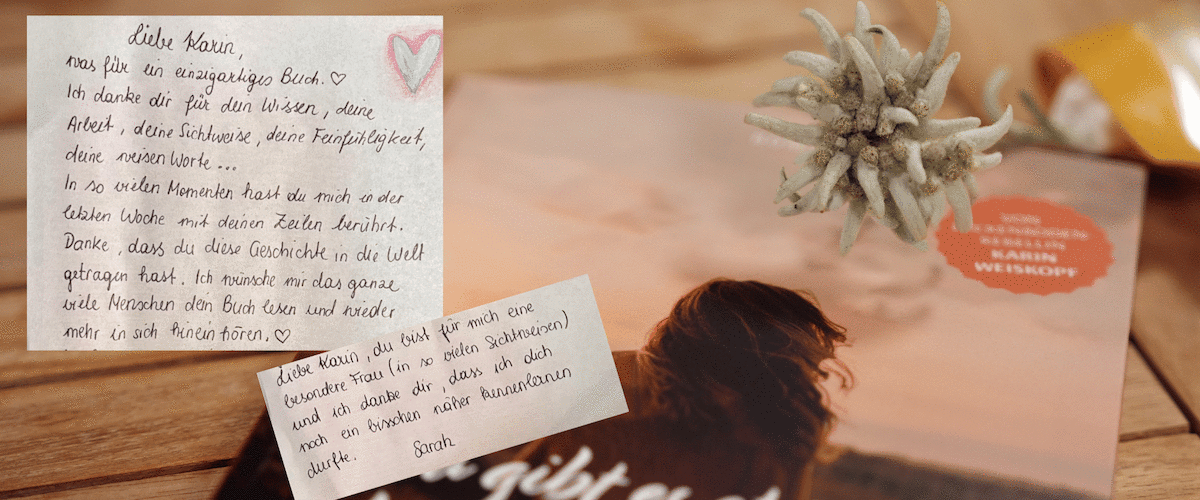 Liebe Karin,
was für ein einzigartiges Buch. ♡
Ich danke dir für dein Wissen, deine
Arbeit, deine Sichtweise, deine Feinfühligkeit,
deine weisen Worte...
In so vielen Momenten hast du mich in der
letzten Woche mit deinen Zeilen berührt.
Danke, dass du diese Geschichte in die Welt
getragen hast. Ich wünsche mir das ganze
viele Menschen dein Buch lesen und wieder
mehr in sich hinein hören. ♡
Liebe Karin, du bist für mich eine
besondere Frau (in so vielen Sichtweisen)
und ich danke dir, dass ich dich
noch ein bisschen näher kennenlernen
durfte. Sarah
REBELLIN
KARIN
WEISKOPF
gibt es